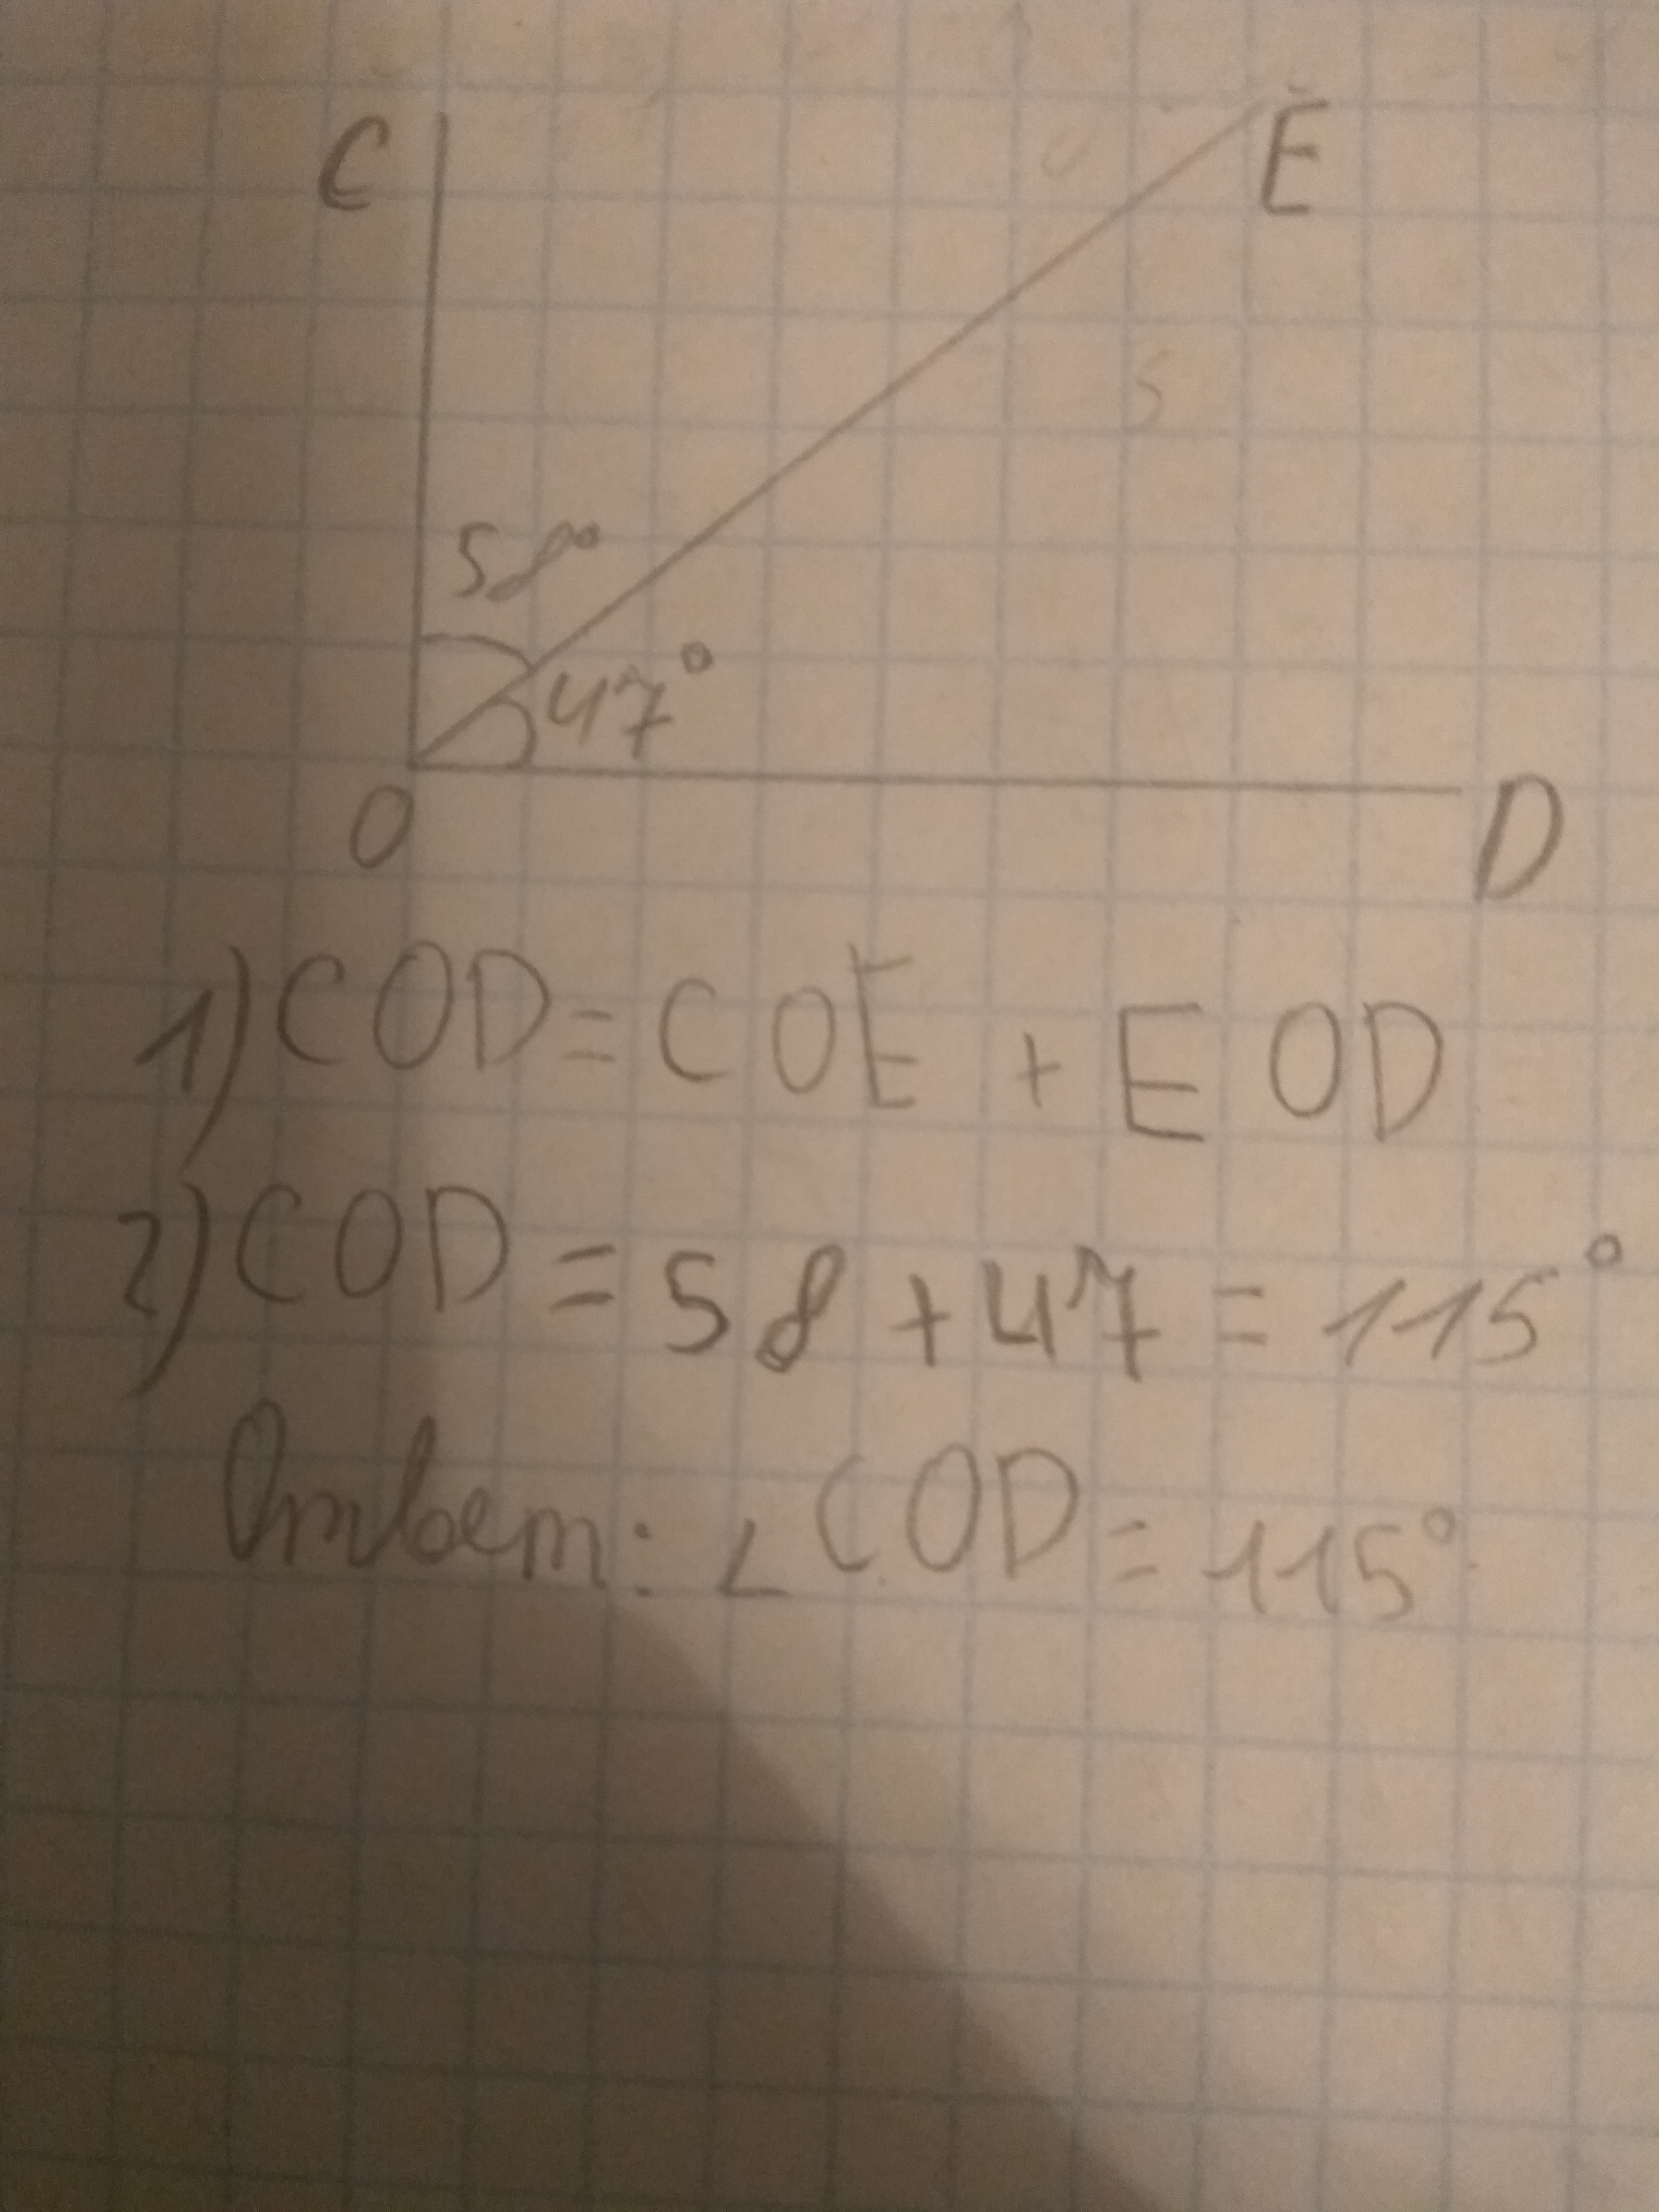 C
E
58°
47°
O
D
1) COD = COE + EOD
2) COD = 58 + 47 = 115°
Ответ: ∠ COD = 115°